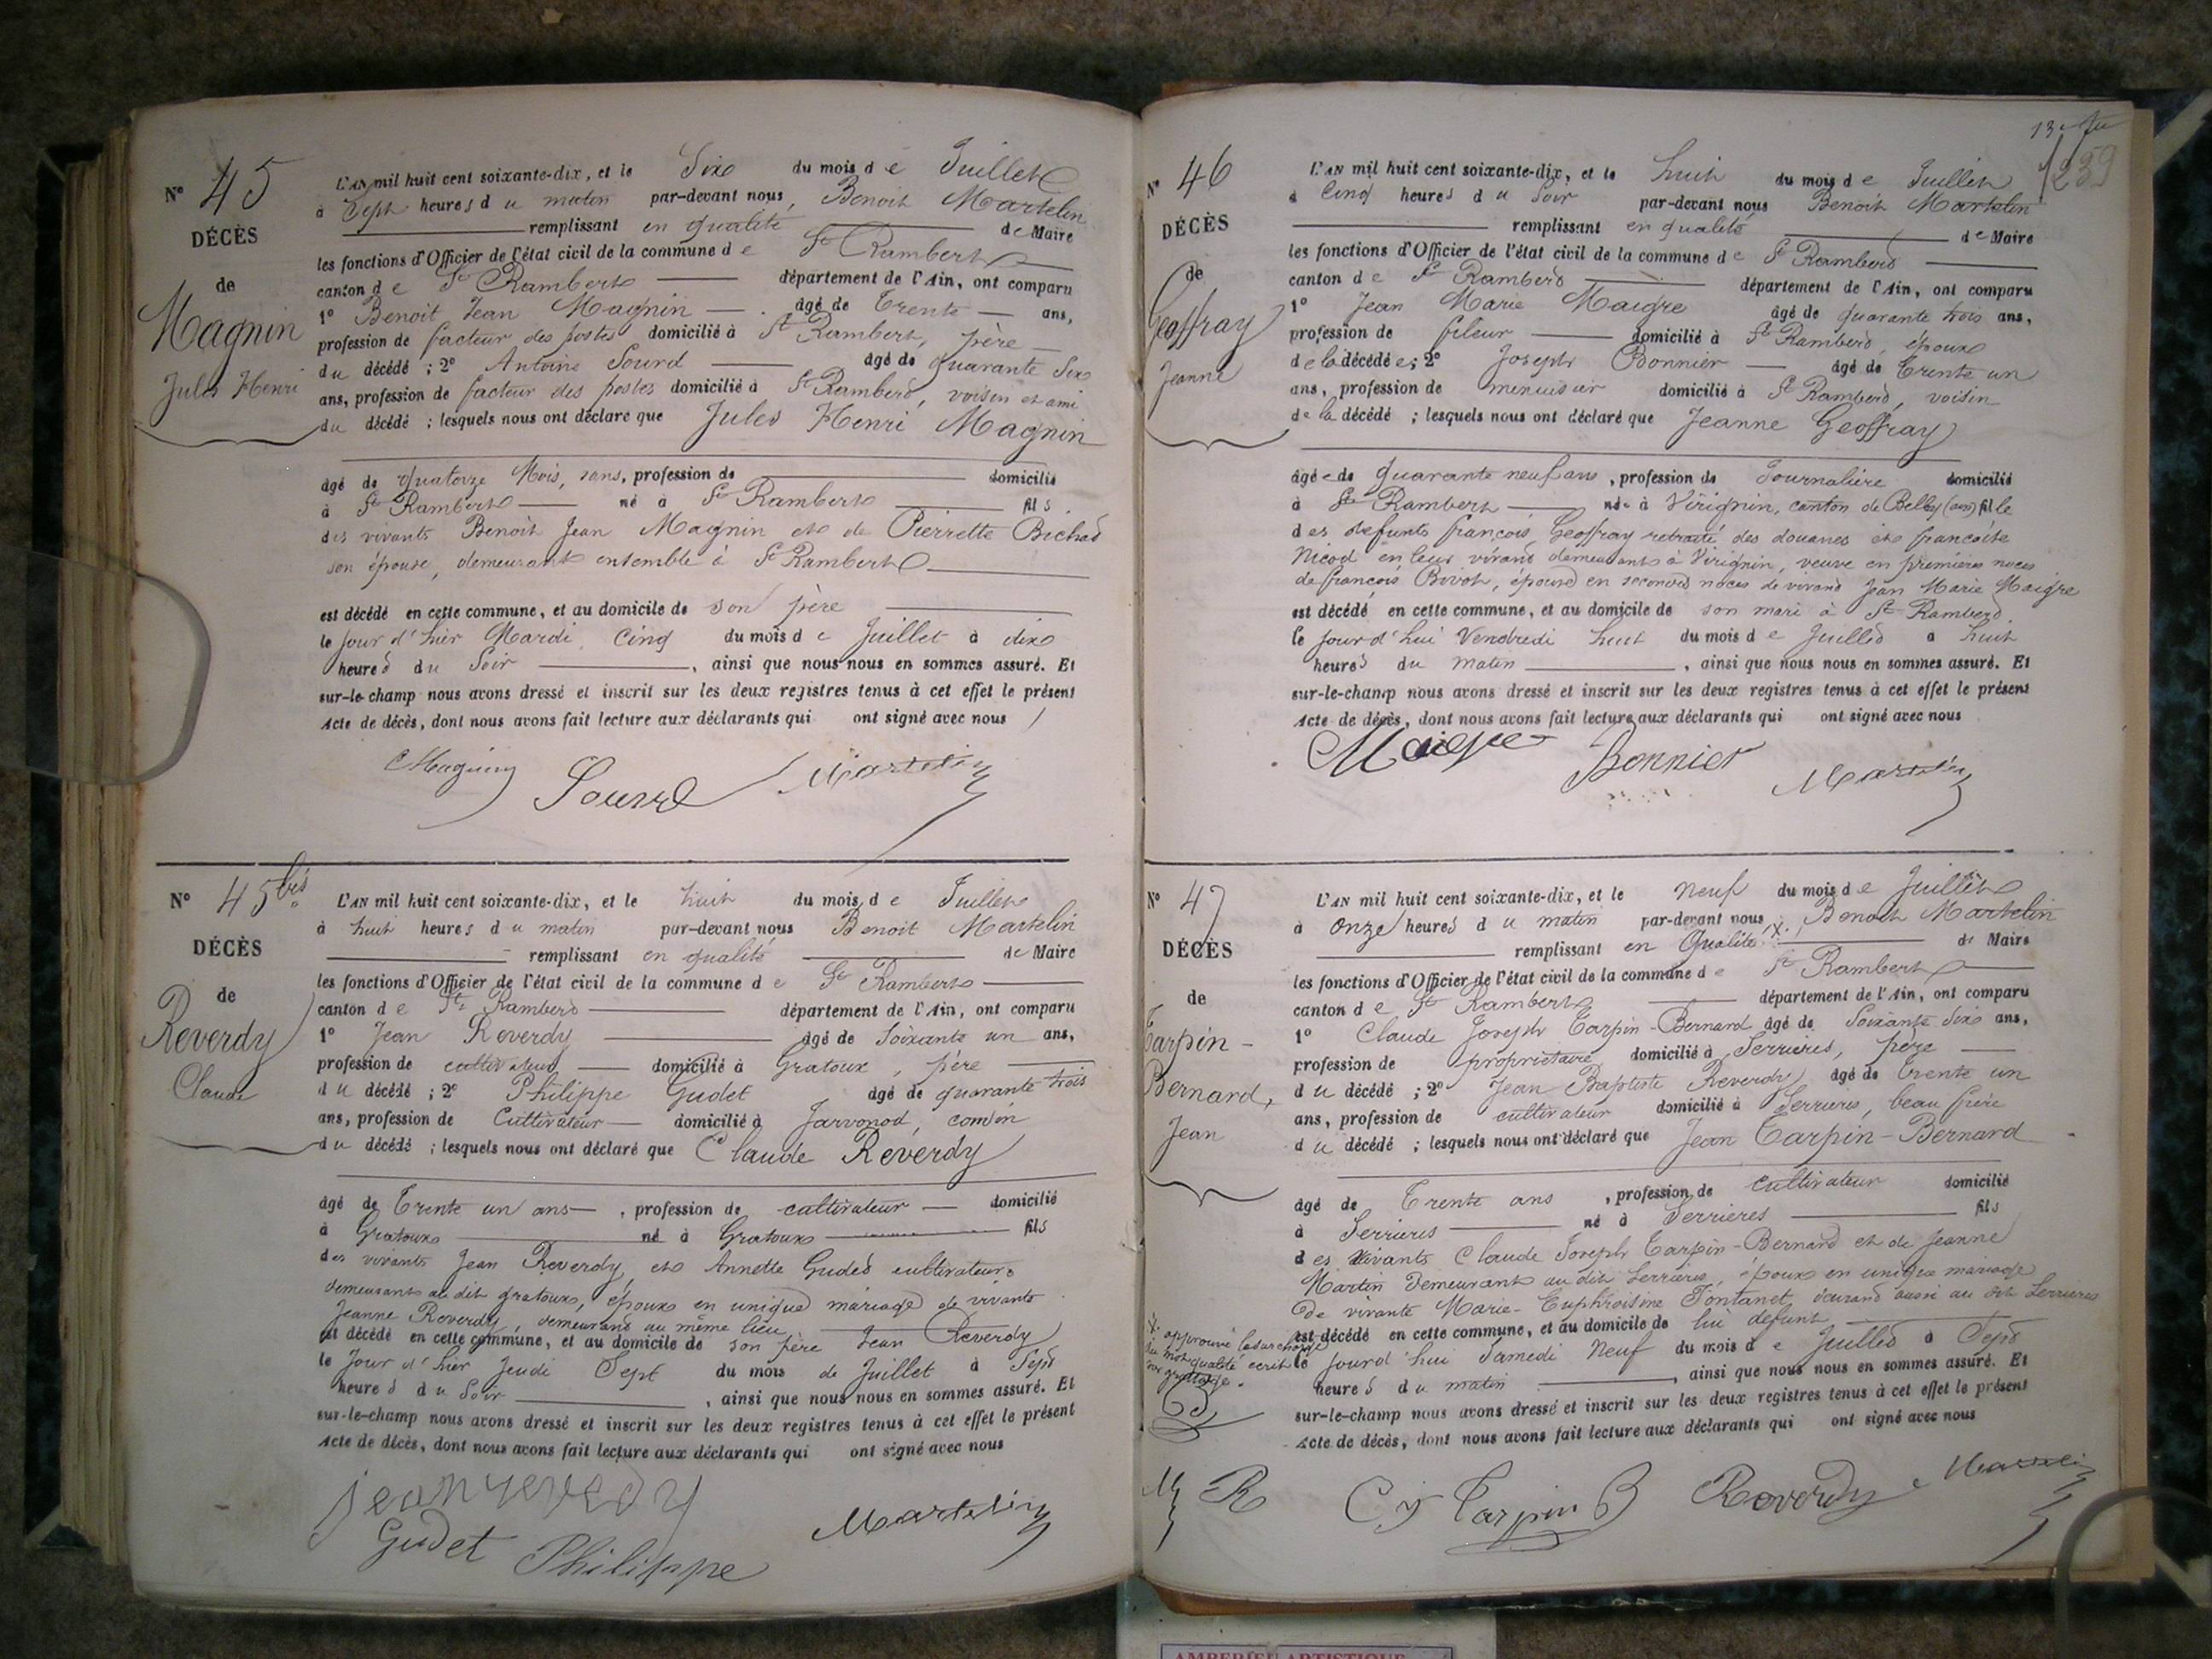 N° 45
DÉCÈS
de
Magnin
Jules Henri
L'AN mil huit cent soixante-dix, et le Six du mois de Juillet
à Sept heures du matin par-devant nous, Benoit Martelin
remplissant en qualité de Maire
les fonctions d'Officier de l'état civil de la commune de St Rambert
canton de St Rambert département de l'Ain, ont comparu
1° Benoit Jean Magnin âgé de trente ans,
profession de facteur des postes domicilié à St Rambert, père
du décédé ; 2° Antoine Sourd âgé de quarante Six
ans, profession de facteur des postes domicilié à St Rambert, voisin et ami
du décédé ; lesquels nous ont déclaré que Jules Henri Magnin
âgé de quatorze Mois, sans, profession de domicilié
à St Rambert né à St Rambert fils
des vivants Benoit Jean Magnin et de Pierrette Bichat
son épouse, demeurant ensemble à St Rambert
est décédé en cette commune, et au domicile de son père
le jour d'hier Mardi, Cinq du mois de Juillet à dix
heures du Soir, ainsi que nous nous en sommes assuré. Et
sur-le-champ nous avons dressé et inscrit sur les deux registres tenus à cet effet le présent
Acte de décès, dont nous avons fait lecture aux déclarants qui ont signé avec nous
Magnin Sourd Martelin
N° 45 bis
DÉCÈS
de
Reverdy
Claude
L'AN mil huit cent soixante-dix, et le huit du mois de Juillet
à huit heures du matin par-devant nous Benoit Martelin
remplissant en qualité de Maire
les fonctions d'Officier de l'état civil de la commune de St Rambert
canton de St Rambert département de l'Ain, ont comparu
1° Jean Reverdy âgé de soixante un ans,
profession de cultivateur domicilié à Gratoux, père
du décédé ; 2° Philippe Gudet âgé de quarante trois
ans, profession de Cultivateur domicilié à Javornod, cousin
du décédé ; lesquels nous ont déclaré que Claude Reverdy
âgé de Trente un ans, profession de cultivateur domicilié
à Gratoux né à Gratoux fils
des vivants Jean Reverdy et Annette Gudet cultivateurs
demeurants au dit gratoux, époux en unique mariage de vivante
Jeanne Reverdy, demeurant au même lieu
est décédé en cette commune, et au domicile de son père Jean Reverdy
le Jour d'hier Jeudi Sept du mois de Juillet à Sept
heures du Soir, ainsi que nous nous en sommes assuré. Et
sur-le-champ nous avons dressé et inscrit sur les deux registres tenus à cet effet le présent
Acte de décès, dont nous avons fait lecture aux déclarants qui ont signé avec nous
jean reverdy
Gudet Philippe Martelin
239
N° 46
DÉCÈS
de
Geoffray
Jeanne
L'AN mil huit cent soixante-dix, et le huit du mois de Juillet
à Cinq heures du Soir par-devant nous Benoit Martelin
remplissant en qualité de Maire
les fonctions d'Officier de l'état civil de la commune de St Rambert
canton de St Rambert département de l'Ain, ont comparu
1° Jean Marie Maigre âgé de quarante trois ans,
profession de fileur domicilié à St Rambert, époux
de la décédée; 2° Joseph Bonnier âgé de trente un
ans, profession de menuisier domicilié à St Rambert, voisin
de la décédé ; lesquels nous ont déclaré que Jeanne Geoffray
âgée de quarante neuf ans, profession de Journalière domicilié
à St Rambert née à Virignin, canton de Belley (ain) fille
des defunts françois Geoffray retraité des douanes et francoise
Nicod en leur vivant demeurant à Virignin, veuve en premières noces
de françois Bivot, épouse en secondes noces de vivant Jean Marie Maigre
est décédé en cette commune, et au domicile de son mari à St Rambert
le jour d'hui Vendredi huit du mois de Juillet à huit
heures du matin, ainsi que nous nous en sommes assuré. Et
sur-le-champ nous avons dressé et inscrit sur les deux registres tenus à cet effet le présent
Acte de décès, dont nous avons fait lecture aux déclarants qui ont signé avec nous
Maigre Bonnier Martelin
N° 47
DÉCÈS
de
Tarpin-
Bernard,
Jean
L'AN mil huit cent soixante-dix, et le Neuf du mois de Juillet
à Onze heures du matin par-devant nous Benoit Martelin
remplissant en Qualité X. de Maire
les fonctions d'Officier de l'état civil de la commune de St Rambert
canton de St Rambert département de l'Ain, ont comparu
1° Claude Joseph Tarpin-Bernard âgé de Soixante Six ans,
profession de propriétaire domicilié à Serrières, père
du décédé ; 2° Jean Baptiste Reverdy âgé de trente un
ans, profession de cultivateur domicilié à Serrieres, beau frère
du décédé ; lesquels nous ont déclaré que Jean Tarpin-Bernard
âgé de Trente ans, profession de cultivateur domicilié
à Serrieres né à Serrieres fils
des vivants Claude Joseph Tarpin-Bernard et de Jeanne
Martin Demeurants au dit Serrieres, époux en unique mariage
de vivante Marie-Euphroisine Fontanet, demeurant aussi au dit Serrieres
est décédé en cette commune, et au domicile de lui défunt
le jourd'hui Samedi Neuf du mois de Juillet à Sept
heures du matin, ainsi que nous nous en sommes assuré. Et
sur-le-champ nous avons dressé et inscrit sur les deux registres tenus à cet effet le présent
Acte de décès, dont nous avons fait lecture aux déclarants qui ont signé avec nous
X. approuvé la surcharge
du mot qualité ecrit
sur grattage.
R C J Tarpin B Reverdy Martelin
AMBERIEU ARTISTIQUE